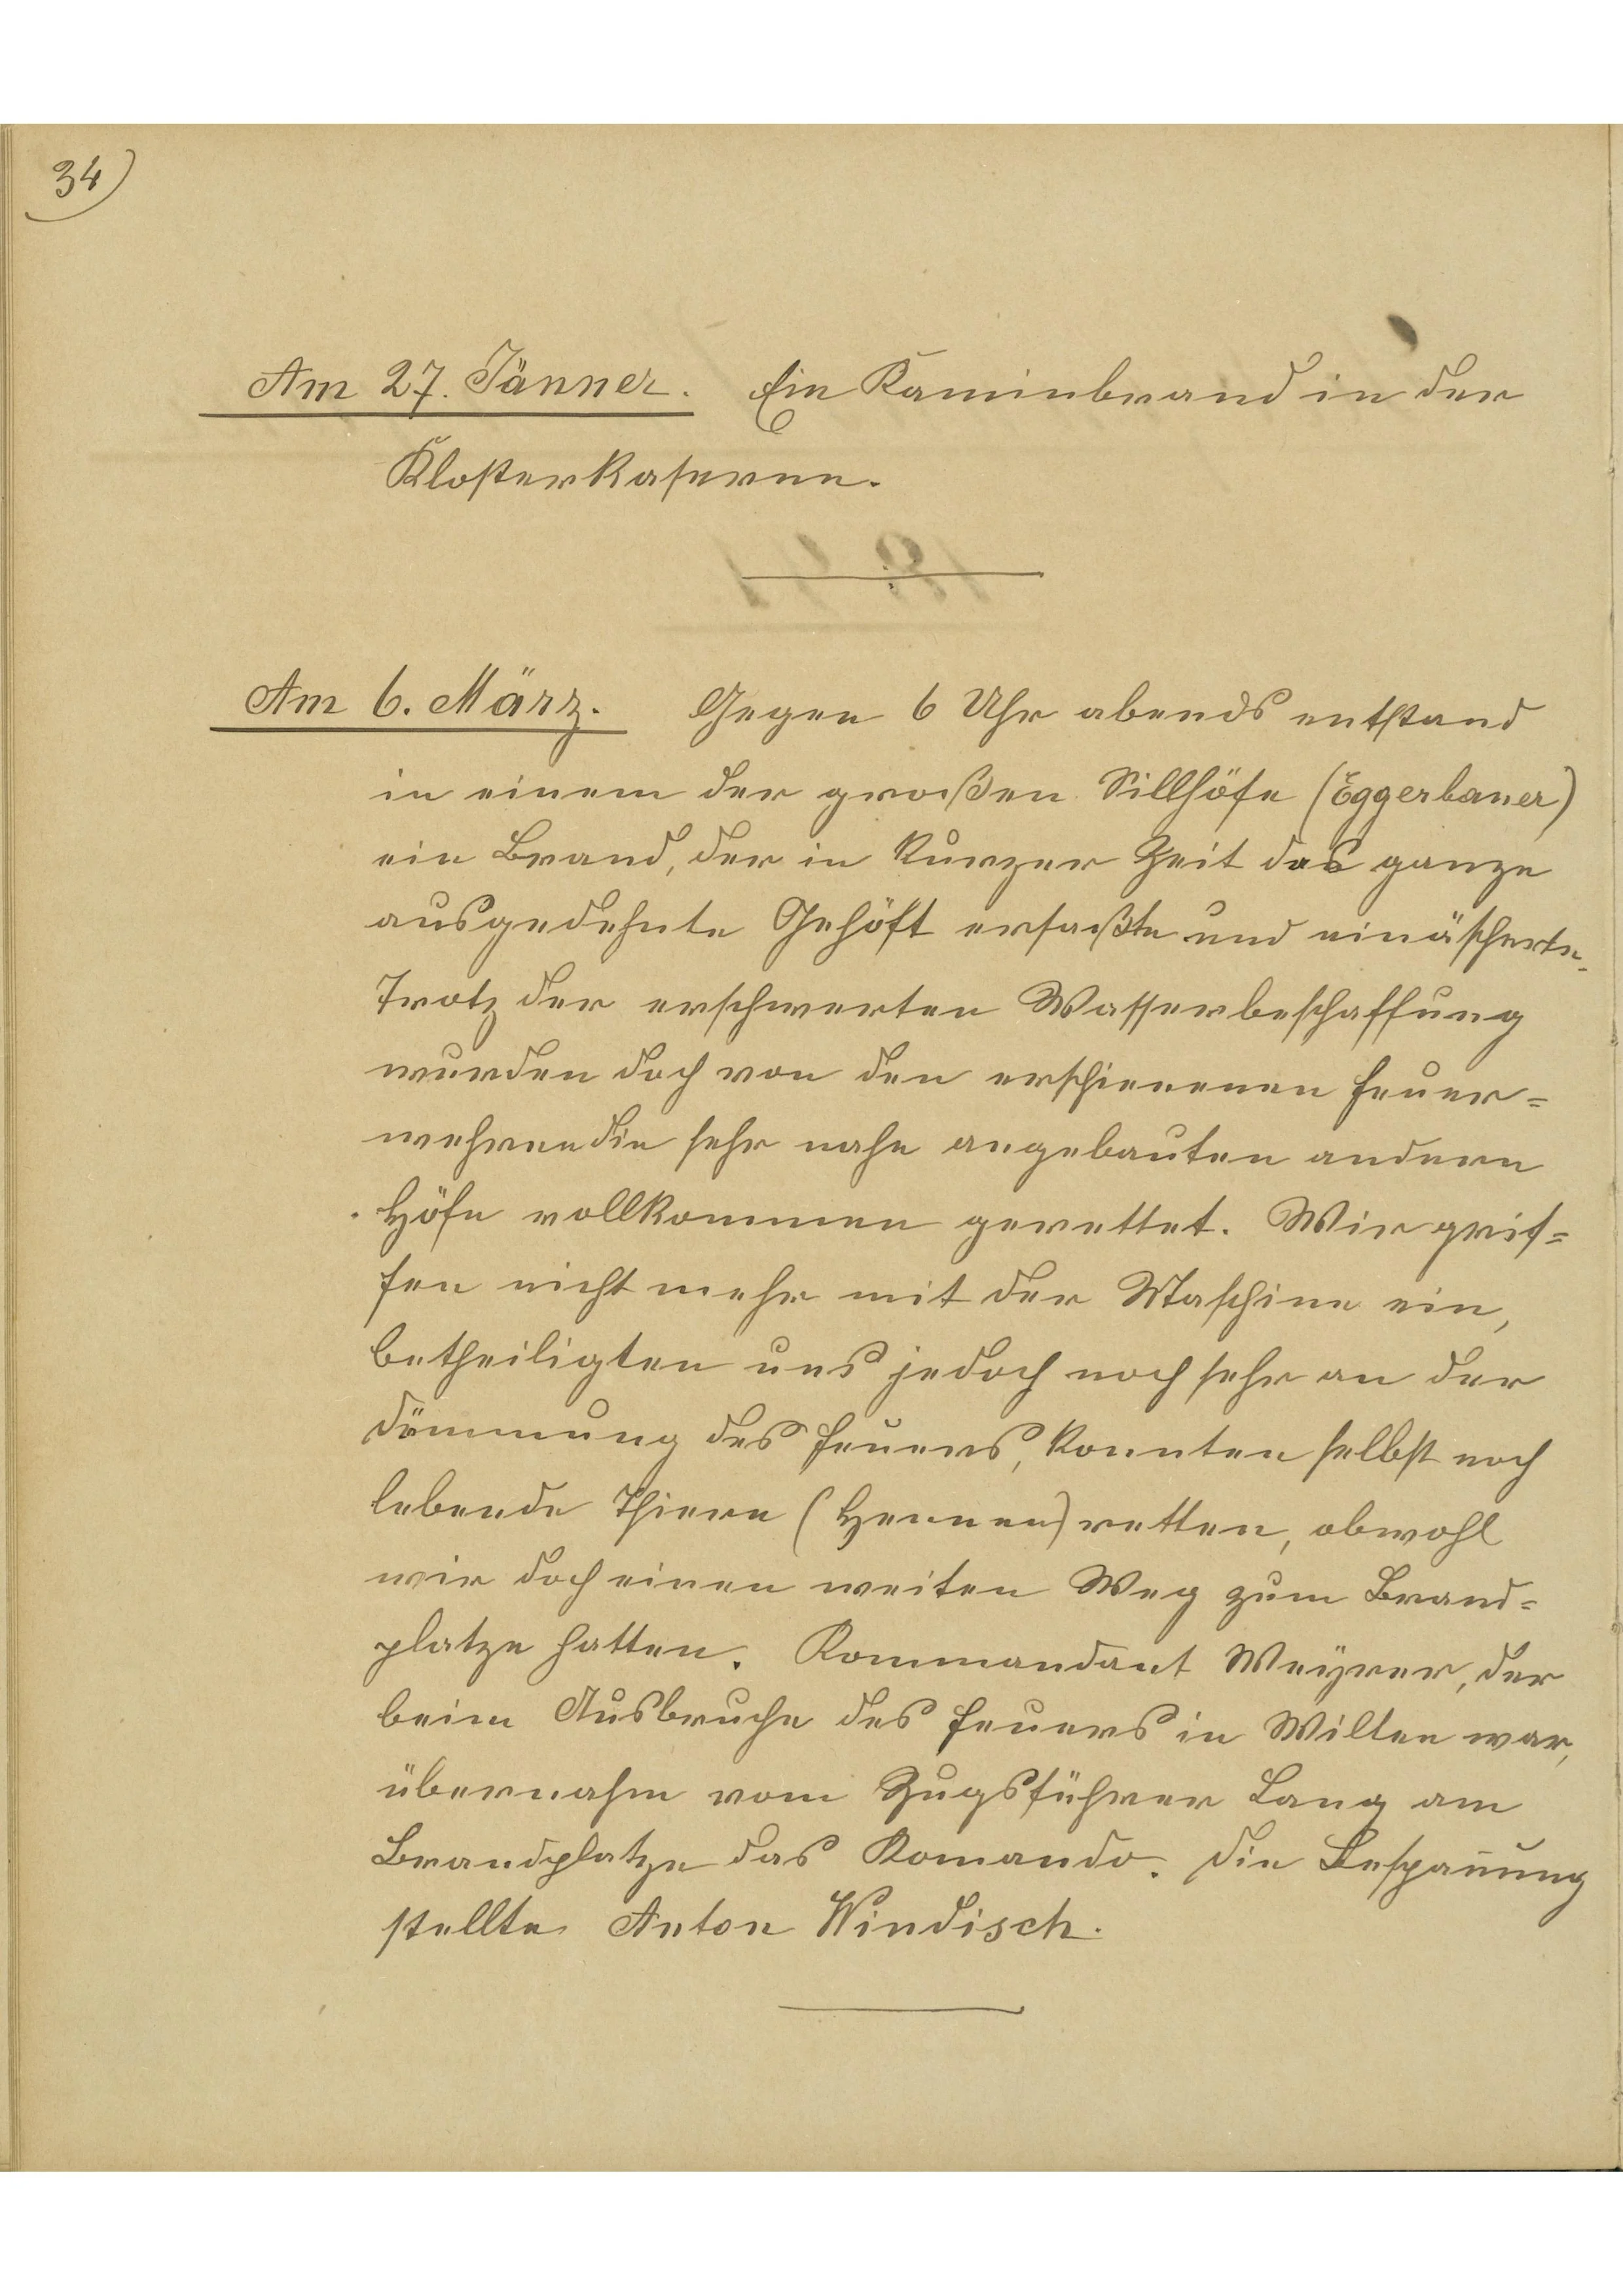 34)
Am 27. Jänner. Ein Kaminbrand in der
Klosterkaserne.
Am 6. März. Gegen 6 Uhr abends entstand
in einem der großen Sillhöfe (Eggerbauer)
ein Brand, der in kurzer Zeit das ganze
ausgedehnte Gehöft erfaßte und einäscherte.
Trotz der erschwerten Wasserbeschaffung
wurden doch von den erschienenen Feuer=
wehren die sehr nahe angebauten andern
Höfe vollkommen gerettet. Wir grif=
fen nicht mehr mit der Maschine ein,
betheiligten uns jedoch noch sehr an der
Dämmung des Feuers, konnten selbst noch
lebende Thiere (Hennen) retten, obwohl
wir doch einen weiten Weg zum Brand=
platze hatten. Kommandant Weyrer, der
beim Ausbruche des Feuers in Wilten war,
übernahm vom Zugsführer Lang am
Brandplatze das Komando. Die Bespan̄ung
stellte Anton Windisch.